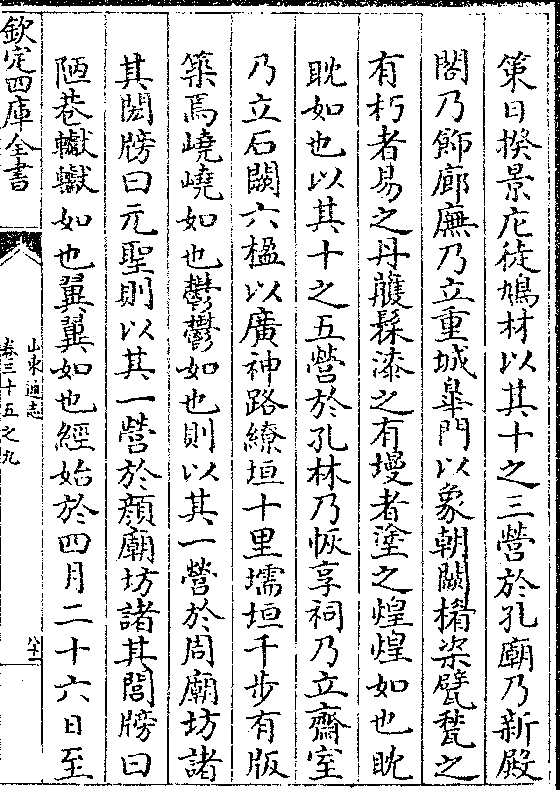 策日揆景庀徒鳩材以其十之三營於孔廟乃新殿
閣乃飾廊廡乃立重城臯門以象朝闕榰楶甓甃之
有朽者易之丹雘髹漆之有墁者塗之煌煌如也眈
眈如也以其十之五營於孔林乃恢享祠乃立齋室
乃立石闕六楹以廣神路繚垣十里壖垣千步有版
築焉嶢嶢如也鬱鬱如也則以其一營於周廟坊諸
其閎牓曰元聖則以其一營於顔廟坊諸其閭牓曰
陋巷轍轍如也翼翼如也經始於四月二十六日至
欽定四庫全書
山東通志
卷三十五之九